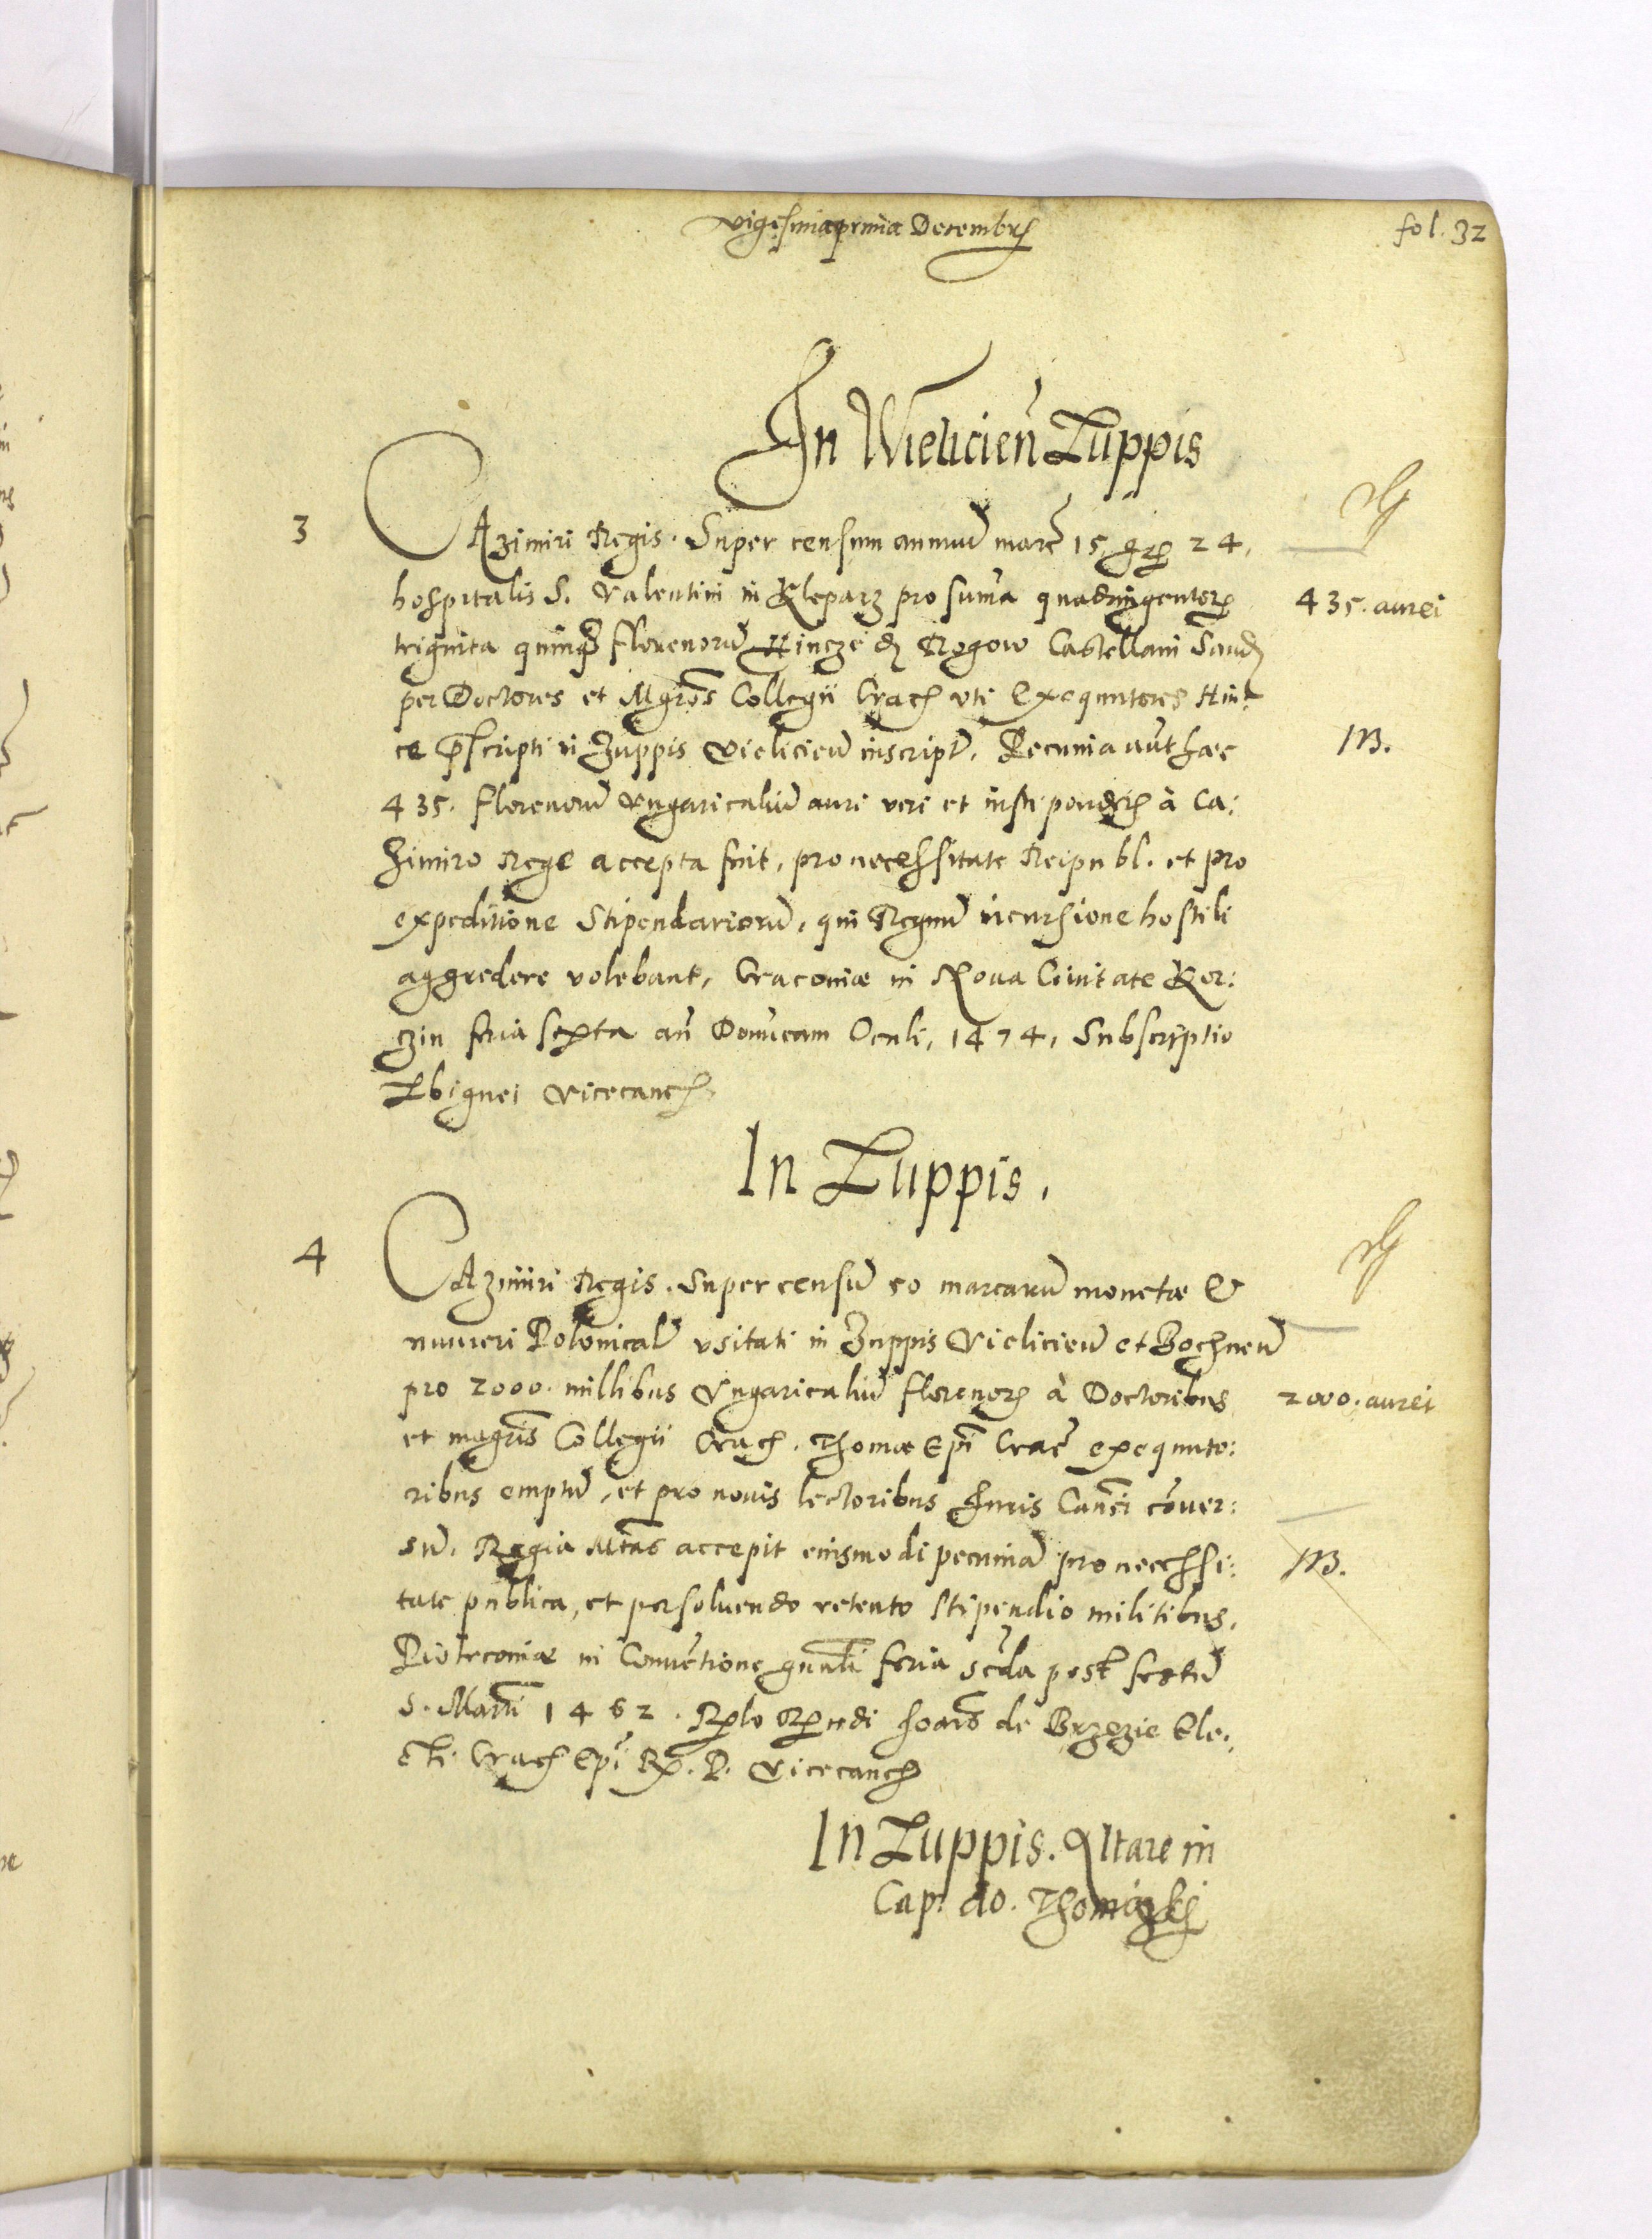 vigesimaprima Decembris
fol. 32
In Wielicień Zuppis
3
CAzimiri Regis. Super censum annuū marc̄ 15, gr. 24,
hospitalis S. Valentini in Kleparz pro sum̄a quadringentor.
435. aurei
triginta quinq; florenorū Hincze de Rogow Castellani Sand.
per Doctores et Mgros Collegii Crac. uti Exequutores Hin:
ce p̄scripti in Zuppis Vielicień inscript. Pecunia aut. haec
M.
435. florenorū Ungaricaliū auri veri et iusti ponderis à Ca:
zimiro Rege accepta fuit, pro necessitate Reipubl. et pro
expeditione Stipendariorū, qui Regnū incursione hostili
aggredere volebant, Cracoviæ in Nova Civitate Kor:
czin feria sexta an̄ Domīcam Oculi, 1474, Subscriptio
Zbignei Vicecanc.
In Zuppis.
4
CAzimiri Regis. Super censū 60 marcarū monetæ &
numeri Polonical. usitati in Zuppis Vieliciēn et Bochneń
pro 2000. millibus Ungaricaliū florenor. à Doctoribus
2000. aurei
et magris Collegii Crac. Thomæ Epī Crac̄ exequuto:
ribus emptū, et pro novis lectoribus Iuris Can̄ci cōver:
sū. Regia Mtas accepit eiusmodi pecuniā pro necessi:
M.
tate publica, et persolvendo retento stipendio militibus.
Piotrcoviæ in Convētione gnāli feria sc̄da post festū
S. Marti 1462. Rlo Rndi Joān̄is de Brzezie Ele:
cti Crac. Epī R. P. Vicecanc.
In Zuppis. Altare in
Cap. do. Thomiczki